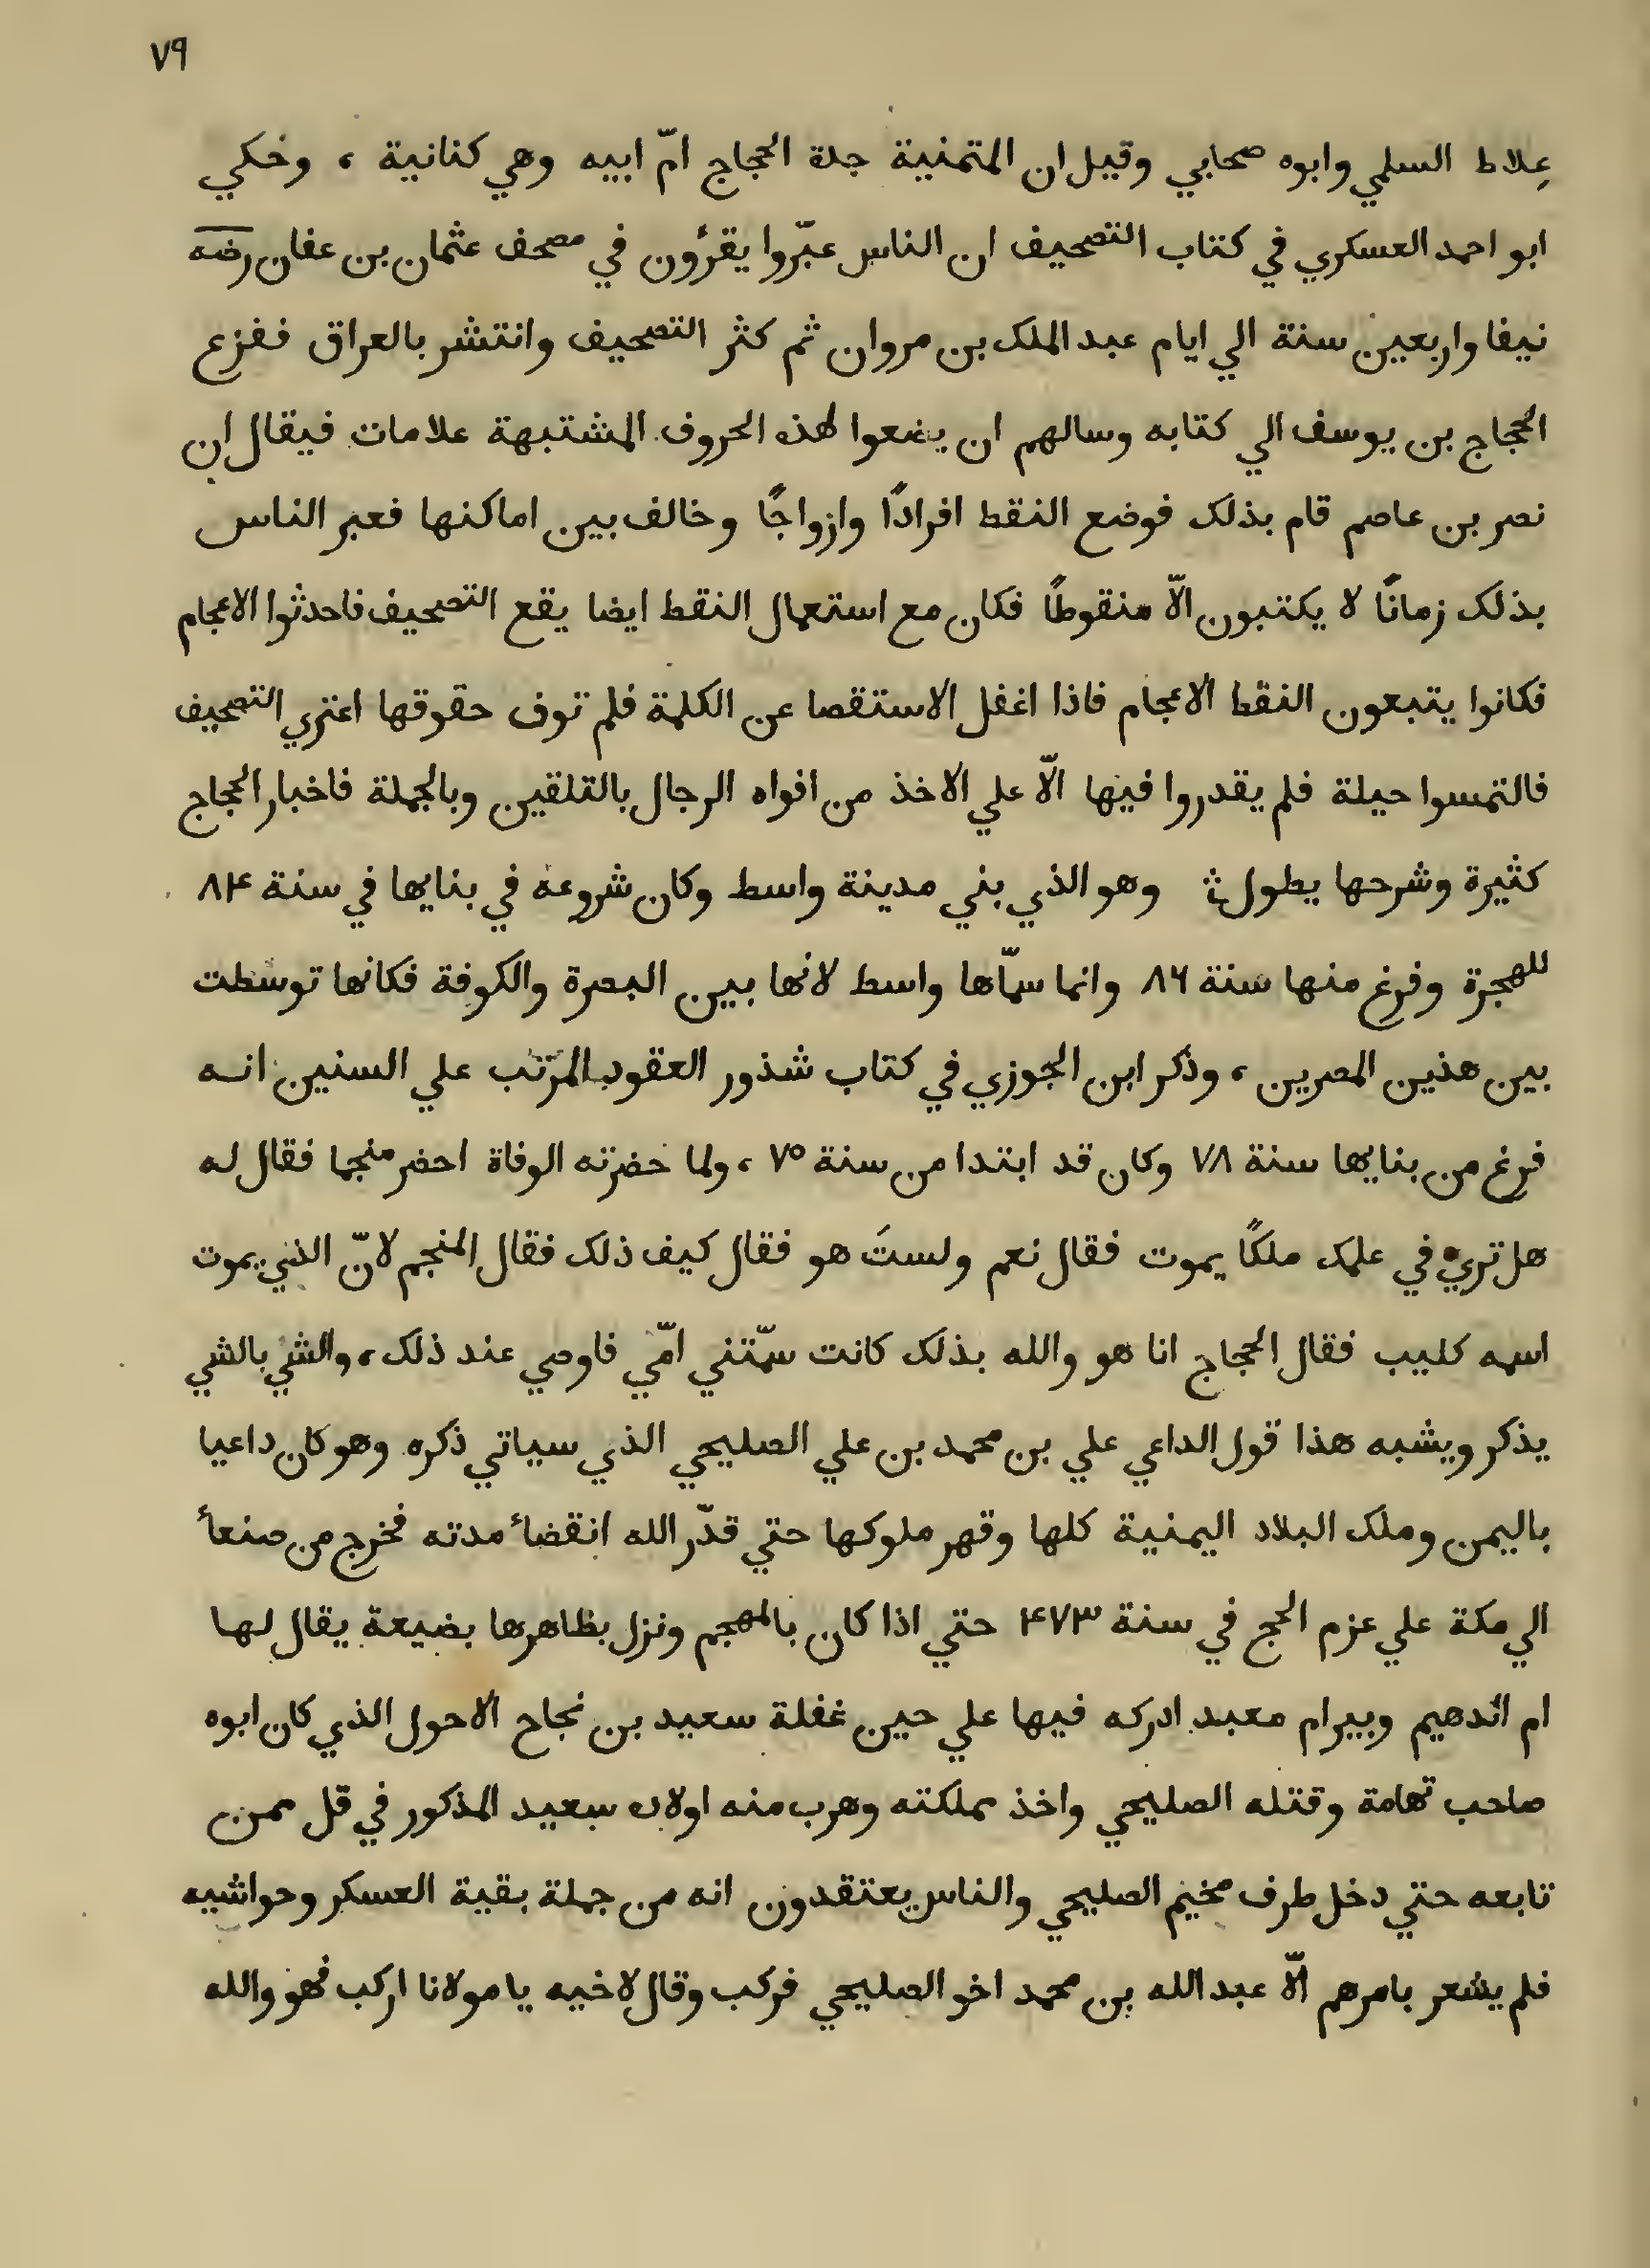 ٧٩
عِلاط السلمي وابوه صحابي وقيل ان المتمنية جدة الحجاج امّ ابيه وهي كنانية ، وحكي
ابو احمد العسكري في كتاب التصحيف ان الناس عبّروا يقرؤن في مصحف عثمان بن عفان رضه
نيفا واربعين سنة الي ايام عبد الملك بن مروان ثم كثر التصحيف وانتشر بالعراق ففزع
الحجاج بن يوسف الي كتابه وسالهم ان يضعوا لهذه الحروف المشتبهة علامات فيقال ان
نصر بن عاصم قام بذلك فوضع النقط افرادًا وازواجًا وخالف بين اماكنها فعبر الناس
بذلك زمانًا لا يكتبون الّا منقوطًا فكان مع استعمال النقط ايضا يقع التصحيف فاحدثوا الاعجام
فكانوا يتبعون النقط الاعجام فاذا اغفل الاستقصا عن الكلمة فلم توف حقوقها اعتري التصحيف
فالتمسوا حيلة فلم يقدروا فيها الّا علي الاخذ من افواه الرجال بالتلقين وبالجملة فاخبار الحجاج
كثيرة وشرحها يطول وهو الذي بني مدينة واسط وكان شروعه في بنايها في سنة ٨۴
للهجرة وفرغ منها سنة ٨٦ وانما سمّاها واسط لانها بين البصرة والكوفة فكانها توسطت
بين هذين المصرين ، وذكر ابن الجوزي في كتاب شذور العقود المرّتب علي السنين انه
فرغ من بنايها سنة ٧٨ وكان قد ابتدا من سنة ٧٥ ، ولما حضرته الوفاة احضر منجما فقال له
هل تري في علمك ملكًا يموت فقال نعم ولستَ هو فقال كيف ذلك فقال المنجم لانّ الذي يموت
اسمه كليب فقال الحجاج انا هو والله بذلك كانت سمّتني امّي فاوصي عند ذلك ، والشي بالشي
يذكر ويشبه هذا قول الداعي علي بن محمد بن علي الصليحي الذي سياتي ذكره وهو كان داعيا
باليمن وملك البلاد اليمنية كلها وقهر ملوكها حتي قدّر الله انقضاء مدته فخرج من صنعاء
الي مكة علي عزم الحج في سنة ۴٧٣ حتي اذا كان بالمهجم ونزل بظاهرها بضيعة يقال لها
ام الدهيم وبيرام معبد ادركه فيها علي حين غفلة سعيد بن نجاح الاحول الذي كان ابوه
صاحب تهامة وقتله الصليحي واخذ مملكته وهرب منه اولاد سعيد المذكور في قل ممن
تابعه حتي دخل طرف مخيم الصليحي والناس يعتقدون انه من جملة بقية العسكر وحواشيه
فلم يشعر بامرهم الّا عبد الله بن محمد اخو الصليحي فركب وقال لاخيه يا مولانا اركب فهو والله